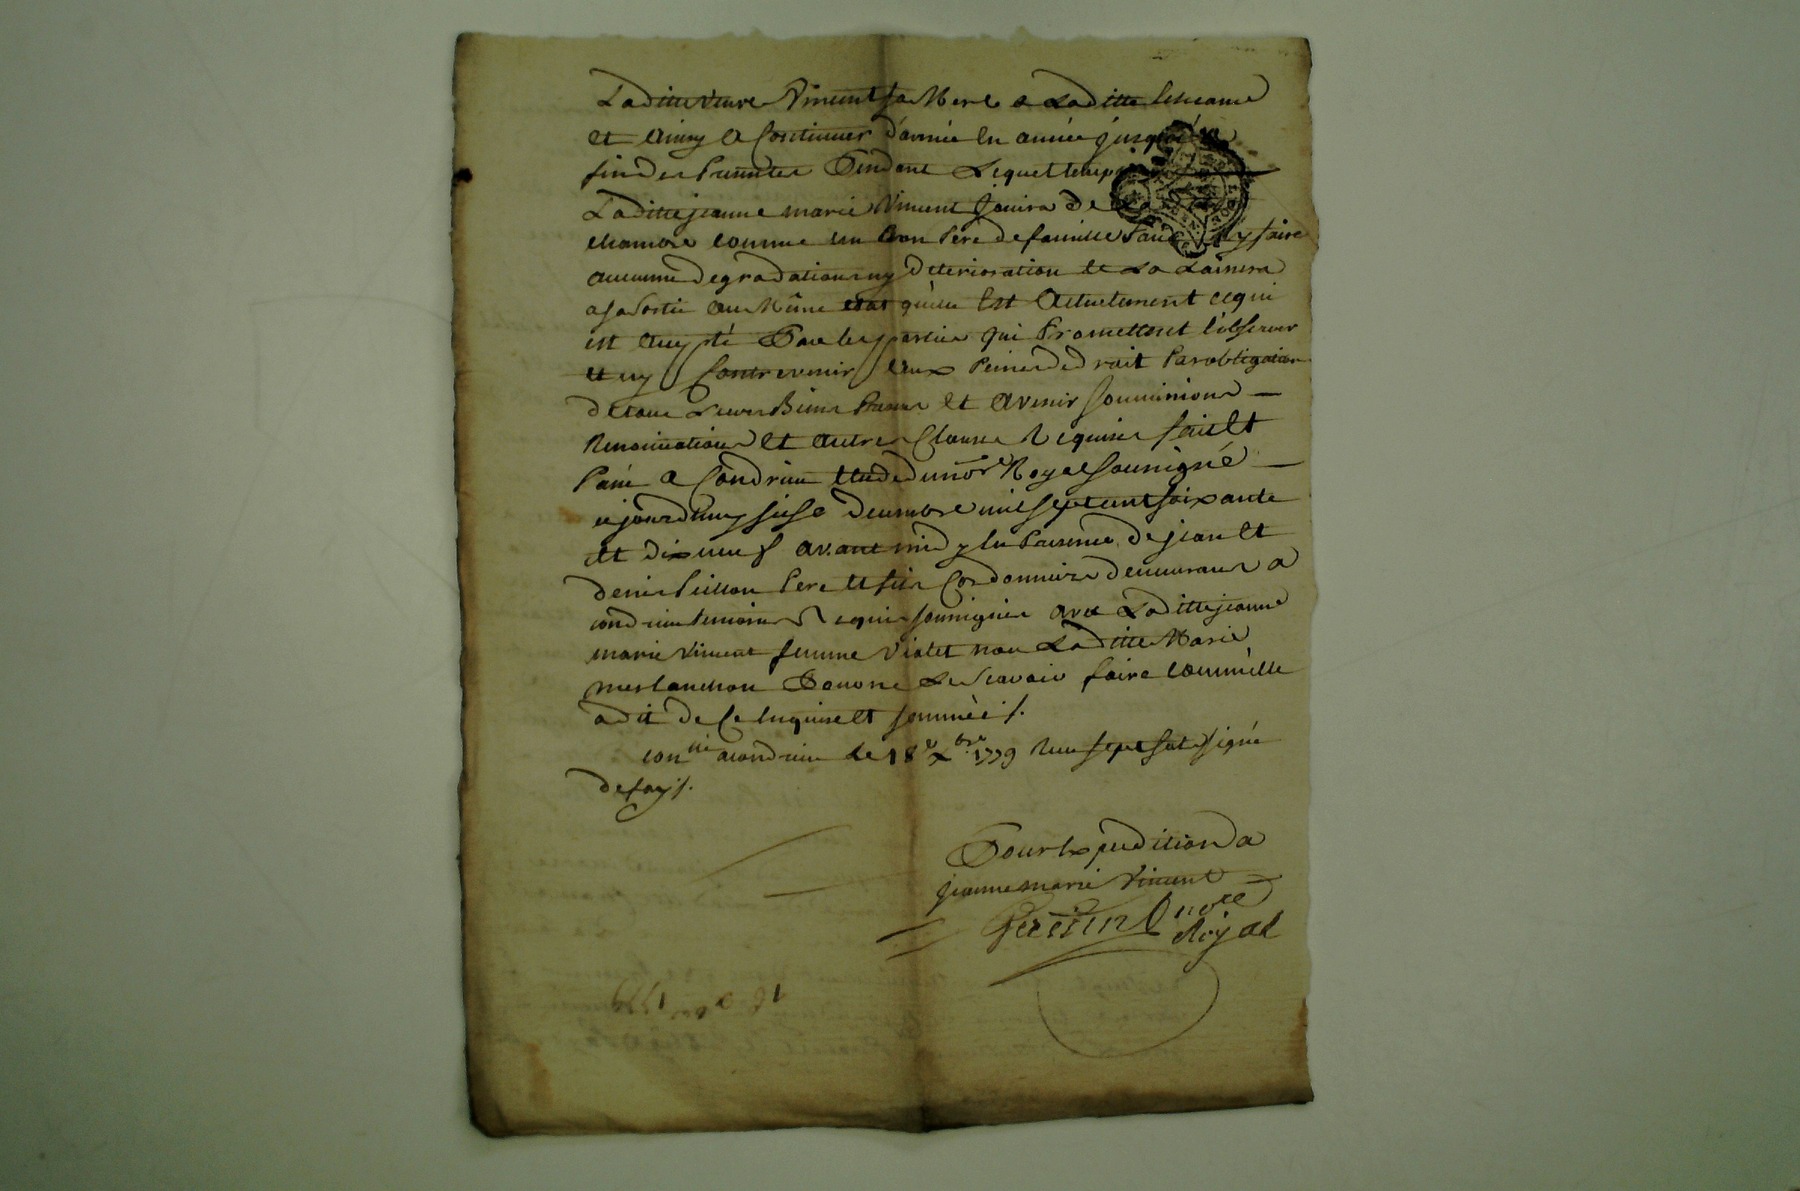 Laditte veuve Vincent sa Mere a Laditte
et ainsy a Continuer d'année En année jusqu'a
fin des Presentes Pendant Lequel temps
Laditte jeanne marie Vincent Jouira de La
chambre comme un Bon Pere de famille Sans y faire
aucunne degradations ny deterioration et La Laissera
a sa Sortie au Même etat qu'elle Est Actuelement ce qui
est accepté Par les parties qui Promettent L'observer
et ny Contrevenir Peines de droit Par obligation
de tous Leurs Biens Presens et Avenir Soumissions
Renonciations Et autres Clauses Requises faict Et
Passé a Condrieu Etude du no.re Royal Soussigné
ce jourd'huy seise decembre mil sept cent soixante
et dix neuf avant midy En Presence de jean Et
denis Pere et fils Cordonniers demeurans a
condrieu temoins Requis soussignés avec Laditte jeanne
marie Vincent femme Violet non Laditte Marie
Pour ne Le Scavoir faire comme elle
a dit de ce Enquise et sommée ./.
con.llé a condrieu le 18.e X.bre 1779 Reçu sept sols signé
defay ./.
Pour Expedition a
jeanne marie Vincent
no.re
Royal